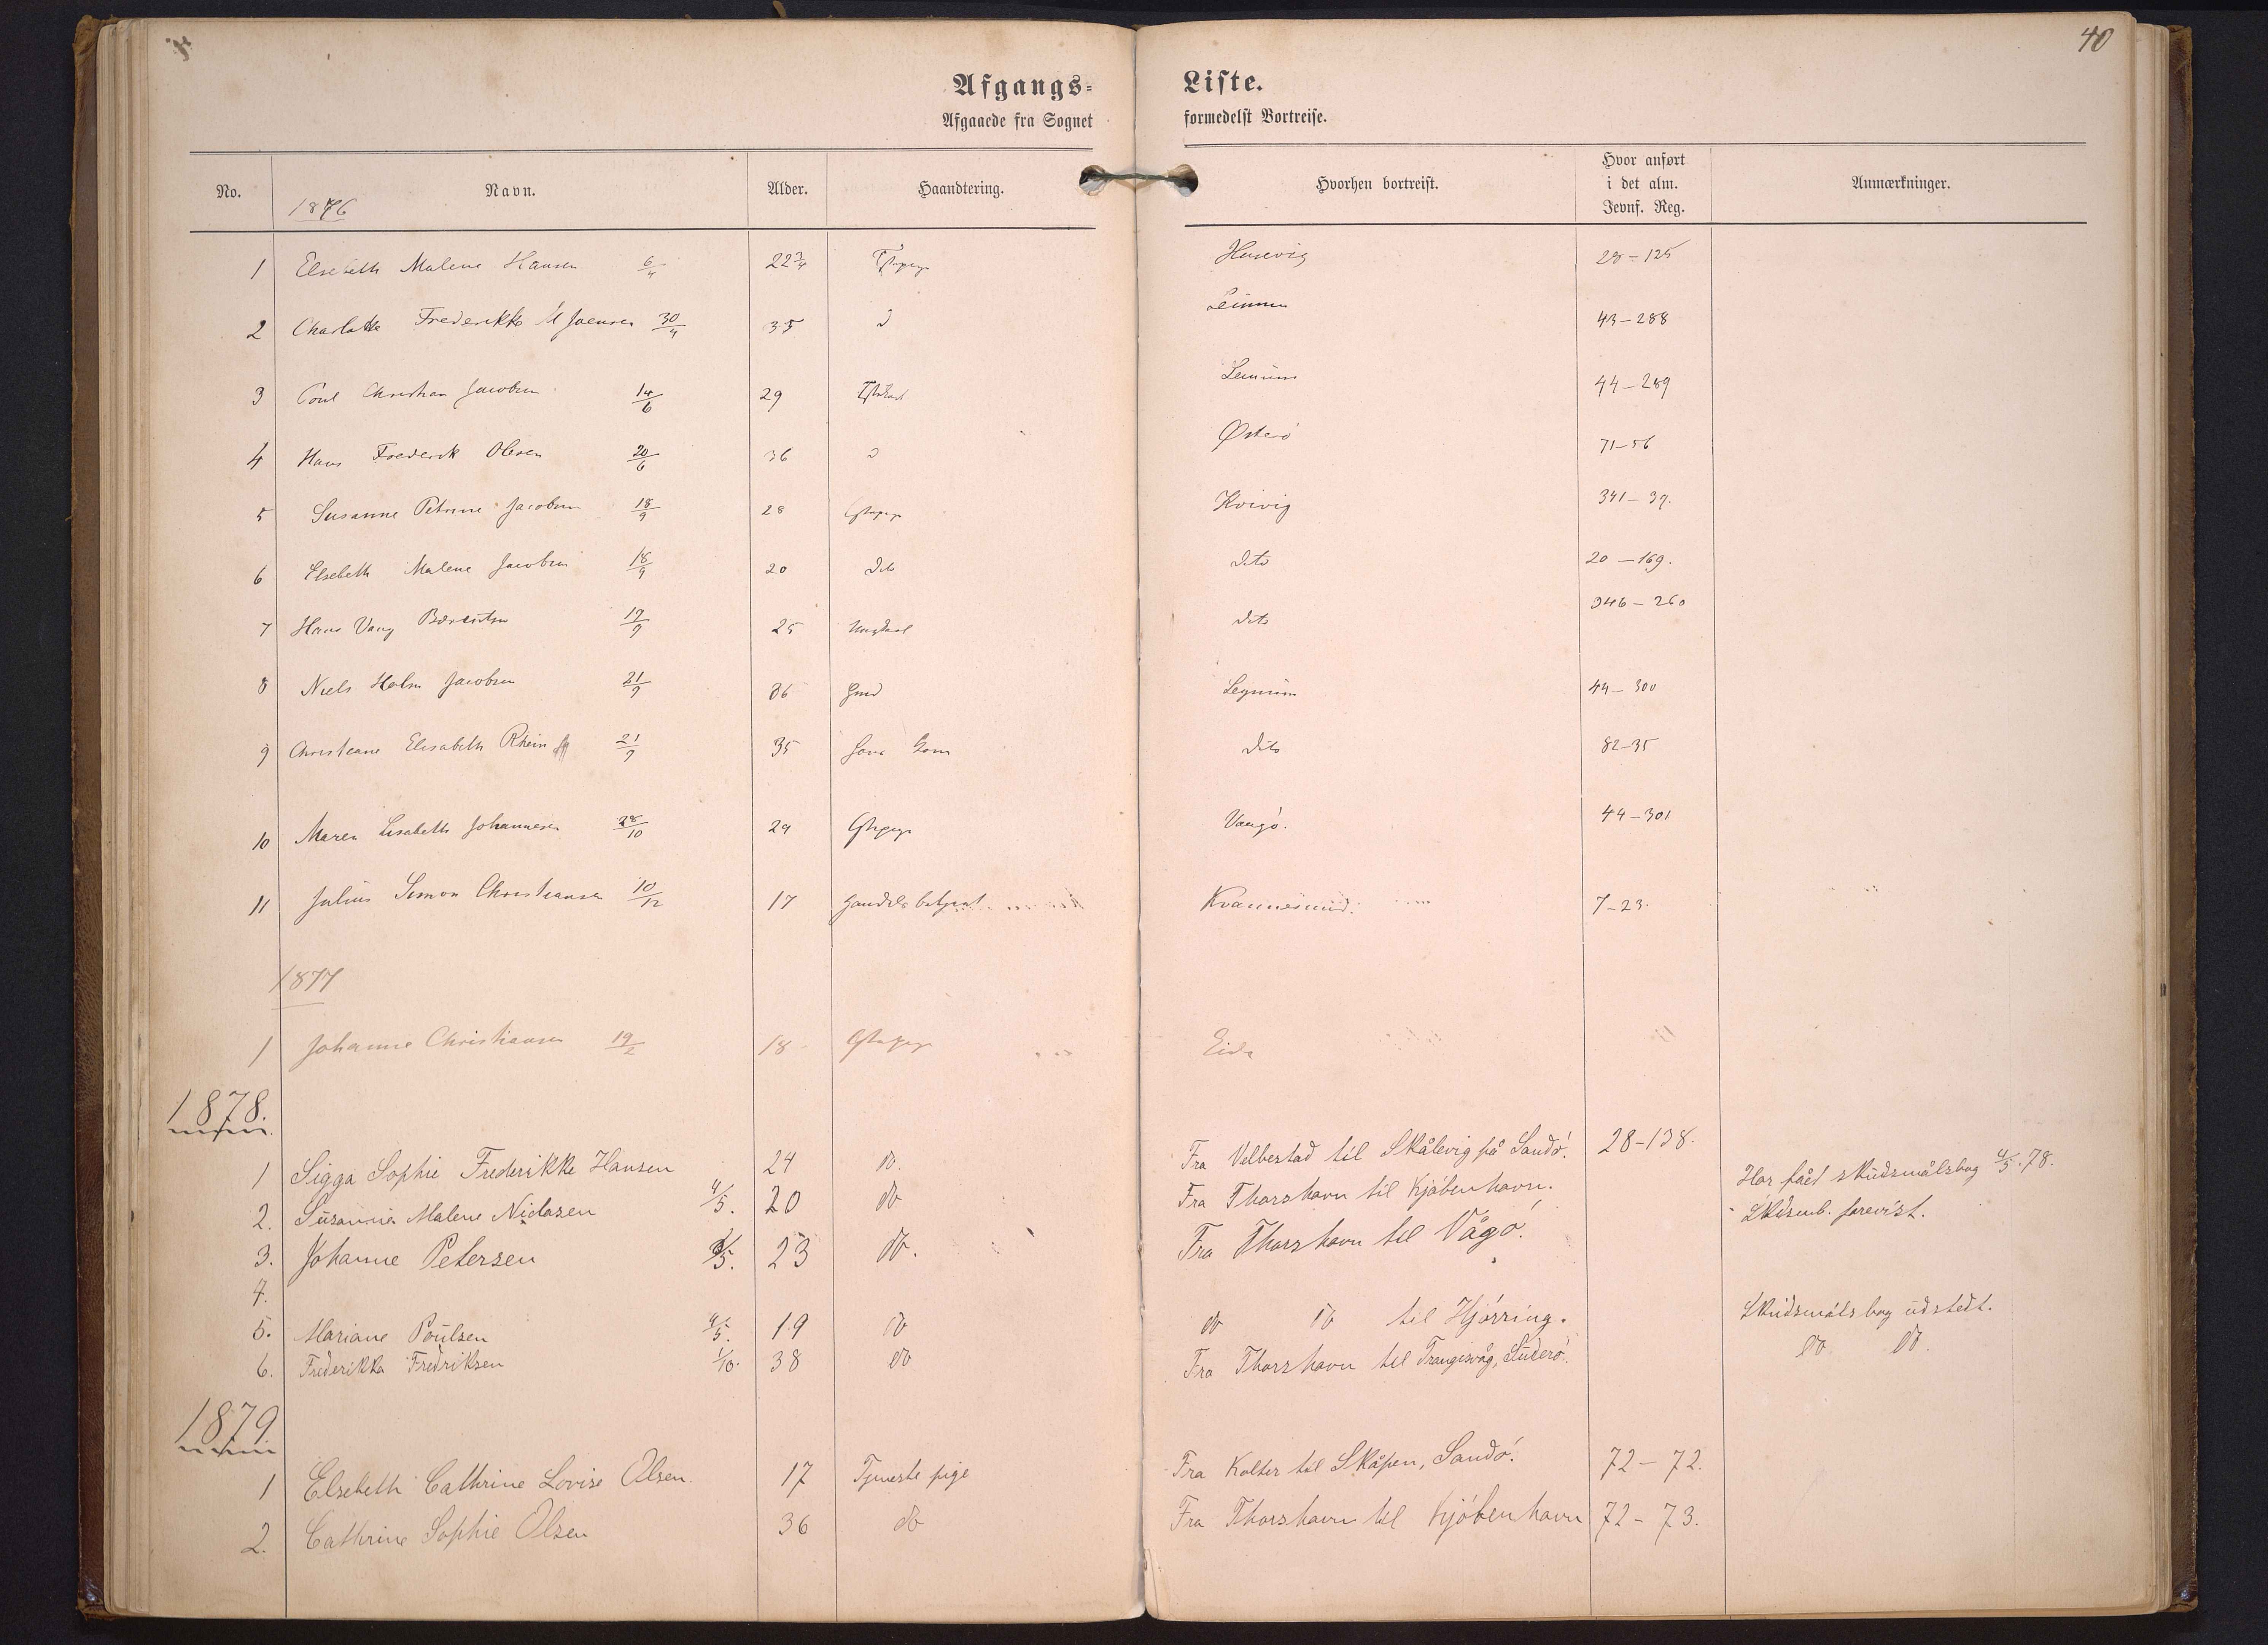 40
Afgangs= Liste.
Afgaaede fra Sognet formedelst Bortreise.
No. Navn. Alder. Haandtering. Hvorhen bortreist. Hvor anført i det alm. Jevnf. Reg. Anmærkninger.
1876
1 Elsebeth Malene Hansen 6/4 22 3/4 Husevig 28-125
2 Charlotte Frederikke M Joensen 30/4 35 d 43-288
3 Poul Christian Jacobsen 14/6 29 44-289
4 Hans Frederik Olesen 20/6 36 d Østerö 71-56
5 Susanne Petrine Jacobsen 18/9 28 Kvivig 341-39.
6 Elsebeth Malene Jacobsen 18/9 20 dito dito 20-169.
7 Hans Vang 19/9 25 Ungkarl dito 346-260
8 Niels Holm Jacobsen 21/9 36 Leynum 44-300
9 Christiane Elisabeth Rhein 21/9 35 hans Kone dito 82-35
10 Maren Lisabeth Johannesen 28/10 29 Vaagö. 44-301
11 Julius Simon Christiansen 10/12 17 Handelsbetjent Kvannesund. 7-23.
1877
1 Johanne Christiansen 19/2 18 Eide
1878.
1 Sigga Sophie Frederikke Hansen 24 do. Fra Velbestad til Skålevig på Sandö. 28-138.
2. Susanne Malene Niclasen 4/5. 20 do Fra Thorshavn til Kjöbenhavn. Har fået skudsmålsbog 4/5. 78.
3. Johanne Petersen 23 do. Fra Thorshavn til Vågö. Skdsmb. forevist.
4.
5. Mariane Poulsen 19 do do do til Hjörring. Skudsmålsbog udstedt.
6. Frederikka Fredriksen 1/10. 38 do Fra Thorshavn til Trangisvåg, Suderö. do do.
1879.
1 Elsebeth Cathrine Lovise Olsen. 17 Tjeneste pige Fra Kolter til Skåpen, Sandö. 72-72.
2. Cathrine Sophie Olsen 36 do Fra Thorshavn til Kjöbenhavn 72-73.